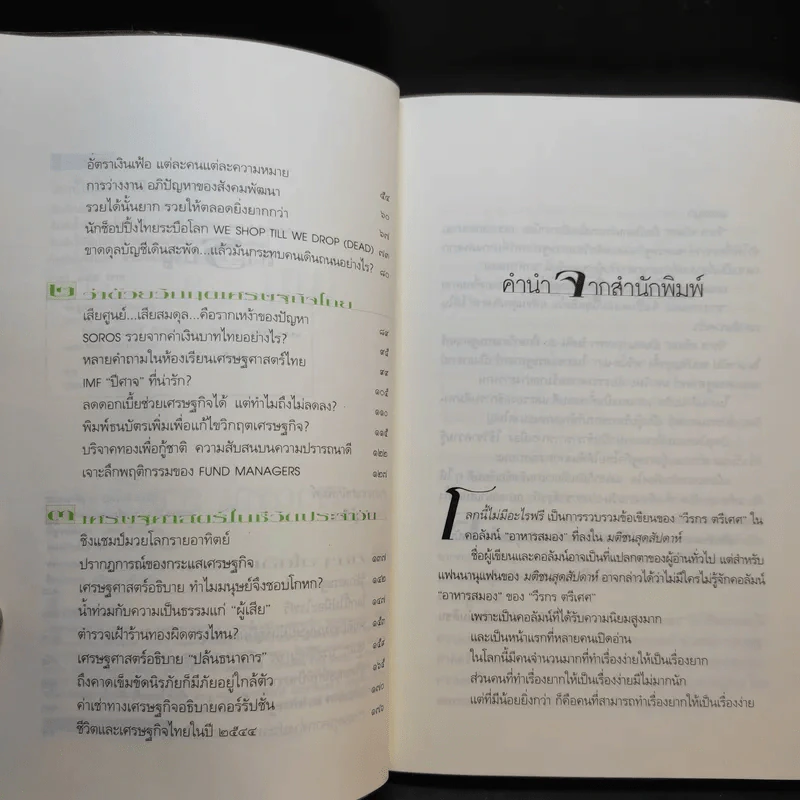 อัตราเงินเฟ้อ แต่ละคนแต่ละความหมาย ๕๔
การว่างงาน อภิปัญหาของสังคมพัฒนา ๖๐
รวยได้นั้นยาก รวยให้ตลอดยิ่งยากกว่า ๖๗
นักช็อปปิ้งไทยระบือโลก WE SHOP TILL WE DROP (DEAD) ๗๓
ขาดดุลบัญชีเดินสะพัด...แล้วมันกระทบคนเดินถนนอย่างไร? ๘๐
๒ ว่าด้วยวิกฤตเศรษฐกิจไทย
เสียศูนย์...เสียสมดุล...คือรากเหง้าของปัญหา ๘๙
SOROS รวยจากค่าเงินบาทไทยอย่างไร? ๙๕
หลายคำถามในห้องเรียนเศรษฐศาสตร์ไทย ๙๙
IMF “ปีศาจ” ที่น่ารัก? ๑๐๕
ลดดอกเบี้ยช่วยเศรษฐกิจได้ แต่ทำไมถึงไม่ลดลง? ๑๑๐
พิมพ์ธนบัตรเพิ่มเพื่อแก้ไขวิกฤตเศรษฐกิจ? ๑๑๕
บริจาคทองเพื่อกู้ชาติ ความสับสนบนความปรารถนาดี ๑๒๒
เจาะลึกพฤติกรรมของ FUND MANAGERS ๑๒๗
๓ เศรษฐศาสตร์ในชีวิตประจำวัน
ชิงแชมป์มวยโลกรายอาทิตย์
ปรากฏการณ์ของกระแสเศรษฐกิจ ๑๓๗
เศรษฐศาสตร์อธิบาย ทำไมมนุษย์จึงชอบโกหก? ๑๔๒
น้ำท่วมกับความเป็นธรรมแก่ “ผู้เสีย” ๑๔๗
ตำรวจเฝ้าร้านทองผิดตรงไหน? ๑๕๓
เศรษฐศาสตร์อธิบาย “ปล้นธนาคาร” ๑๕๙
ถึงคาดเข็มขัดนิรภัยก็มีภัยอยู่ใกล้ตัว ๑๖๕
ค่าเช่าทางเศรษฐกิจอธิบายคอร์รัปชั่น ๑๗๐
ชีวิตและเศรษฐกิจไทยในปี ๒๕๔๔ ๑๗๖
คำนำจากสำนักพิมพ์
โลกนี้ไม่มีอะไรฟรี เป็นการรวบรวมข้อเขียนของ “วีรกร ตรีเศศ” ใน
คอลัมน์ “อาหารสมอง” ที่ลงใน มติชนสุดสัปดาห์
ชื่อผู้เขียนและคอลัมน์อาจเป็นที่แปลกตาของผู้อ่านทั่วไป แต่สำหรับ
แฟนนานุแฟนของ มติชนสุดสัปดาห์ อาจกล่าวได้ว่าไม่มีใครไม่รู้จักคอลัมน์
“อาหารสมอง” ของ “วีรกร ตรีเศศ”
เพราะเป็นคอลัมน์ที่ได้รับความนิยมสูงมาก
และเป็นหน้าแรกที่หลายคนเปิดอ่าน
ในโลกนี้มีคนจำนวนมากที่ทำเรื่องง่ายให้เป็นเรื่องยาก
ส่วนคนที่ทำเรื่องยากให้เป็นเรื่องง่ายมีไม่มากนัก
แต่ที่มีน้อยยิ่งกว่า ก็คือคนที่สามารถทำเรื่องยากให้เป็นเรื่องง่าย